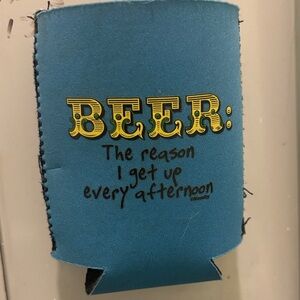 BEER:
The reason
I get up
every afternoon